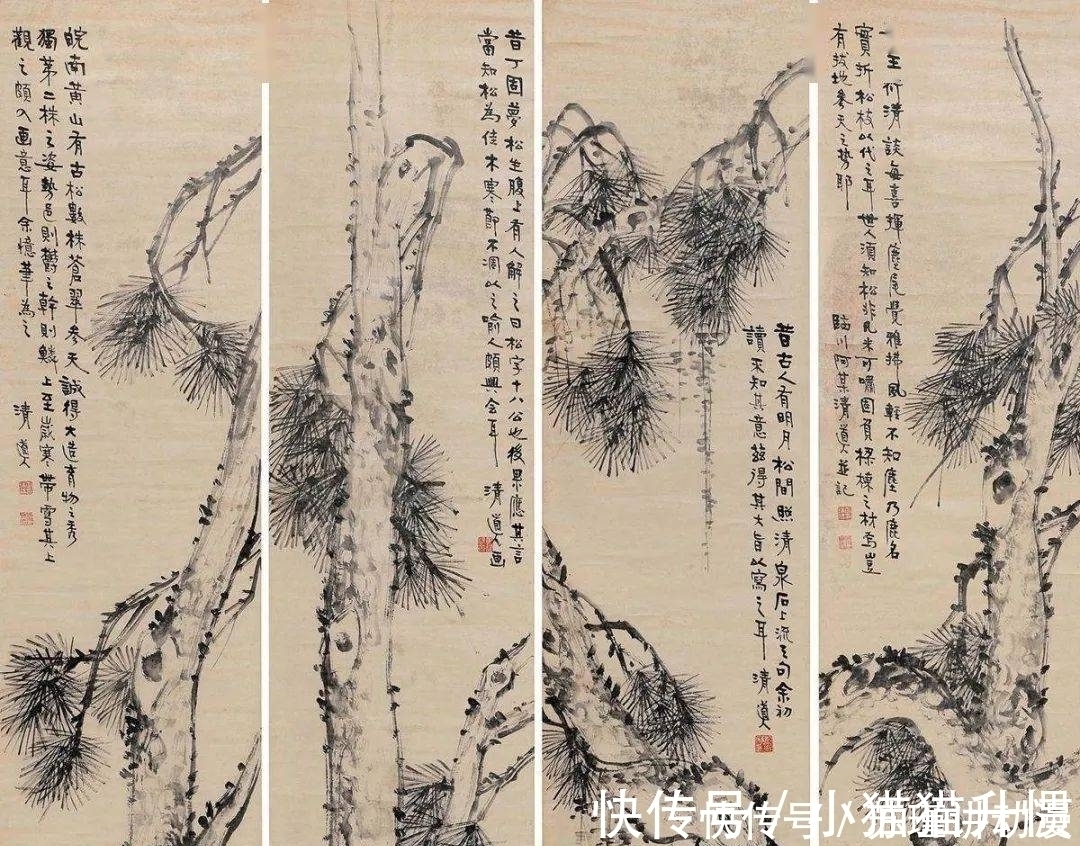 王衍清談每喜揮麈尾覺雅拂風輕不知麈乃鹿名
實折松枝以代之耳世人須知松非凡木可囑固負樑棟之材焉豈
有拔地參天之勢耶
臨川阿某清道人並記
昔古人有明月松間照清泉石上流之句余初
讀不知其意茲得其大旨以寫之耳 清道人
昔丁固夢松生腹上有人解之曰松字十八公也後果應其言
當知松為佳木寒節不凋以之喻人頗興會耳 清道人画
皖南黃山有古松數株蒼翠參天誠得大造育物之秀
獨第二株之姿勢色則鬱之幹則鱗上至歲寒帶雪其上
觀之頗入画意耳余憶筆為之 清道人
快传号/小猫猫